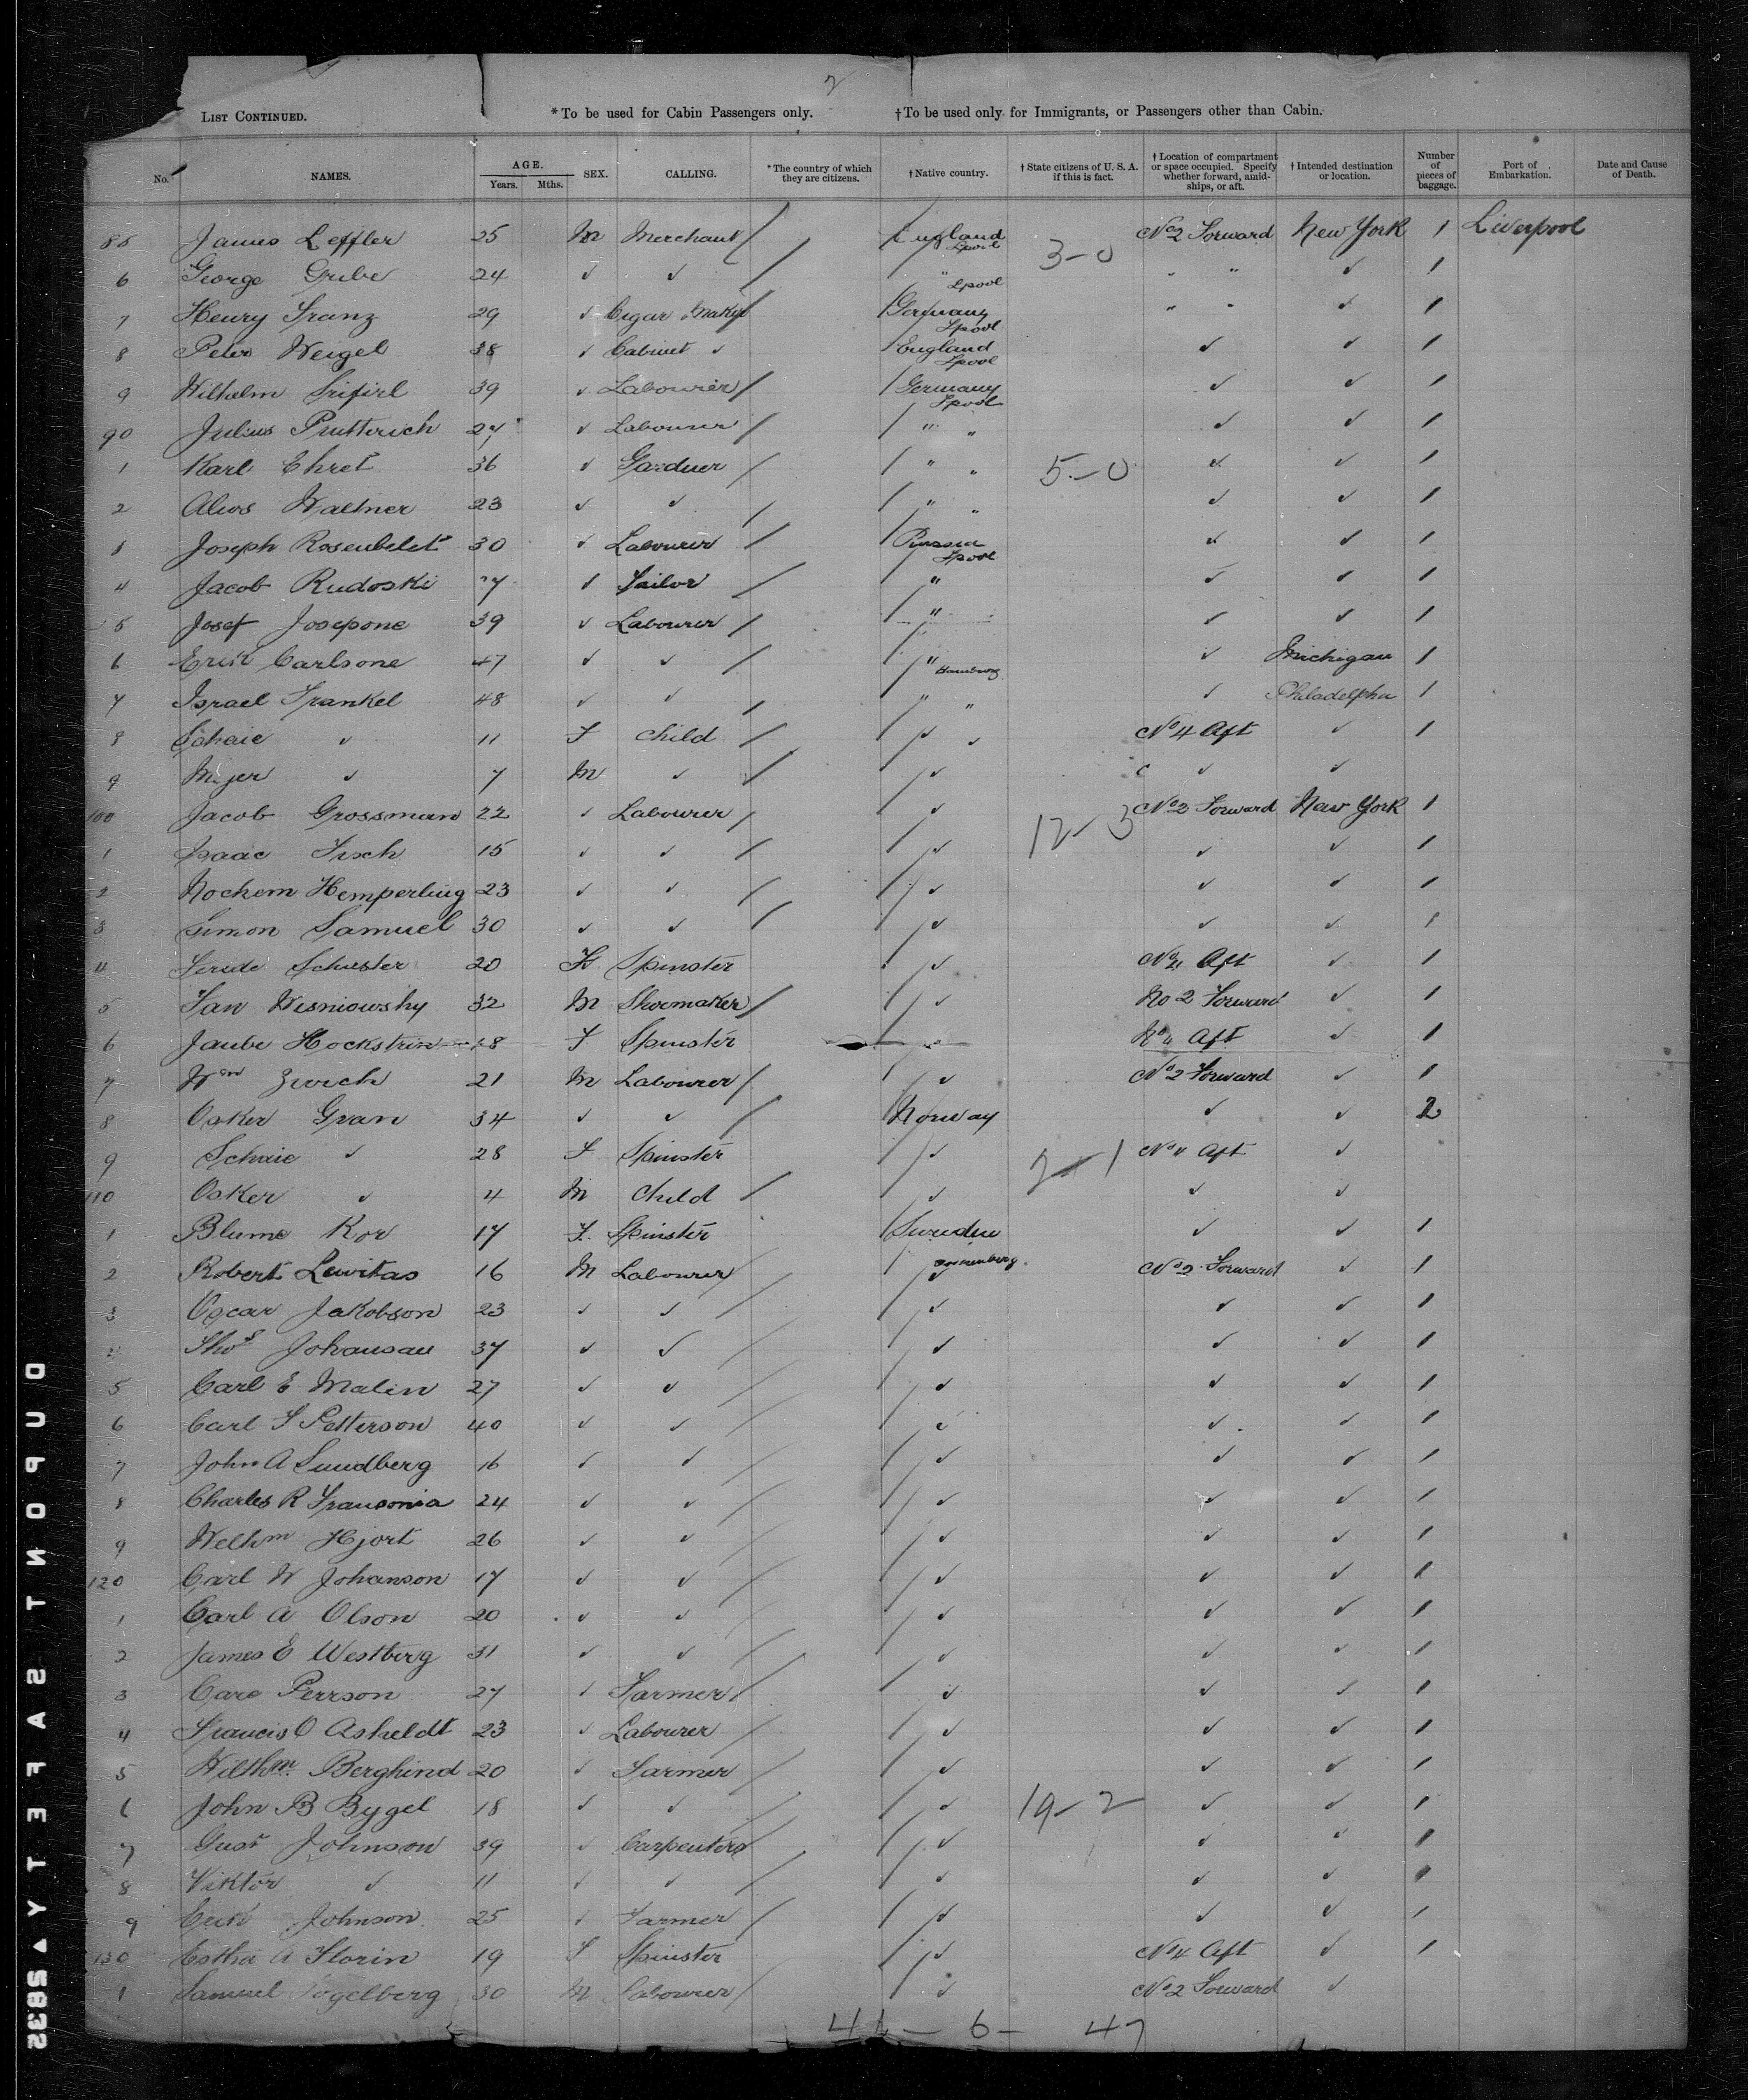 2
LIST CONTINUED. *To be used for Cabin Passengers only. †To be used only for Immigrants, or Passengers other than Cabin.
No. NAMES. AGE. Years. Mths. SEX. CALLING. *The country of which they are citizens. †Native country. †State citizens of U. S. A. if this is fact. †Location of compartment or space occupied. Specify whether forward, amidships, or aft. †Intended destination or location. Number of pieces of baggage. Port of Embarkation. Date and Cause of Death.
86 James Leffler 25 M Merchant / England Lpool 3-0 No 2 Forward New York 1 Liverpool
6 George Grube 24 ✓ ✓ / " Lpool " " ✓ 1
7 Henry Franz 29 ✓ Cigar Maker / Germany Lpool " " ✓ 1
8 Peter Weigel 38 ✓ Cabinet ✓ England Lpool ✓ ✓ 1
9 Wilhelm 39 ✓ Labourer / Germany Lpool ✓ ✓ 1
90 Julius Prutterich 24 ✓ Labourer / " " ✓ ✓ 1
1 Karl Ehret 36 ✓ Gardner / " " 5-0 ✓ ✓ 1
2 Alios Waltner 23 ✓ ✓ / " " ✓ ✓ 1
3 Joseph Rosenbelet 30 ✓ Labourer / Russia Lpool ✓ ✓ 1
4 Jacob Rudoski ✓ Tailor / " ✓ ✓ 1
5 Josef Josepone 39 ✓ Labourer / " ✓ ✓ 1
6 Erik Carlsone 47 ✓ ✓ / " Hamburg ✓ Michigan 1
7 Israel Frankel 48 ✓ ✓ / " " ✓ Philadelphia 1
8 Schaie ✓ 11 F Child / ✓ ✓ No 4 Aft ✓ 1
9 Mejer ✓ 7 M ✓ / ✓ ✓ ✓
100 Jacob Grossman 22 ✓ Labourer / ✓ 12-3 No 2 Forward New York 1
1 Isaac Fisch 15 ✓ ✓ / ✓ ✓ ✓ 1
2 Nochem Hemperling 23 ✓ ✓ / ✓ ✓ ✓ 1
3 Simon Samuel 30 ✓ ✓ / ✓ ✓ ✓ 1
4 Schuster 20 F Spinster ✓ No 4 Aft ✓ 1
5 Jan Wisniowshy 32 M Shoemaker / ✓ No 2 Forward ✓ 1
6 Jaube Hockstein 18 F Spinster ✓ No 4 Aft ✓ 1
7 Wm Zwick 21 M Labourer / ✓ No 2 Forward ✓ 1
8 Osker Gran 34 ✓ ✓ / Norway ✓ ✓ 2
9 Schaie ✓ 28 F Spinster ✓ 2-1 No 4 Aft ✓
110 Osker ✓ 4 M Child / ✓ ✓ ✓
1 Blume Kor 17 F. Spinster Sweden ✓ ✓ 1
2 Robert Lewitas 16 M Labourer / ✓ No 2 Forward ✓ 1
3 Oscar Jakobson 23 ✓ ✓ / ✓ ✓ ✓ 1
Thos Johansau 37 ✓ ✓ / ✓ ✓ ✓ 1
5 Carl E Malin 27 ✓ ✓ / ✓ ✓ ✓ 1
6 Carl F Petterson 40 ✓ ✓ / ✓ ✓ ✓ 1
7 John A Sundberg 16 ✓ ✓ / ✓ ✓ ✓ 1
8 Charles R Fransonia 24 ✓ ✓ / ✓ ✓ ✓ 1
9 Welhm Hjort 26 ✓ ✓ / ✓ ✓ ✓ 1
120 Carl W Johanson 17 ✓ ✓ / ✓ ✓ ✓ 1
1 Carl A Olson 20 ✓ ✓ / ✓ ✓ ✓ 1
2 James E Westberg 31 ✓ ✓ / ✓ ✓ ✓ 1
3 Care Perrson 27 ✓ Farmer / ✓ ✓ ✓ 1
4 Francis O Asheldt 23 ✓ Labourer / ✓ ✓ ✓ 1
5 Wilthm. Berghind 20 ✓ Farmer / ✓ ✓ ✓ 1
6 John B Bygel 18 ✓ ✓ / ✓ 19-2 ✓ ✓ 1
7 Gust Johnson 39 ✓ Carpenters / ✓ ✓ ✓ 1
8 Viktor ✓ 11 ✓ ✓ / ✓ ✓ ✓ 1
9 Erik Johnson 25 ✓ Farmer / ✓ ✓ ✓ 1
130 Estha A Florin 19 F Spinster ✓ No 4 Aft ✓ 1
1 Samuel Fogelberg 30 M Labourer / ✓ No 2 Forward ✓
41 - 6 - 47
DUPONT SAFETY ▲ S8832